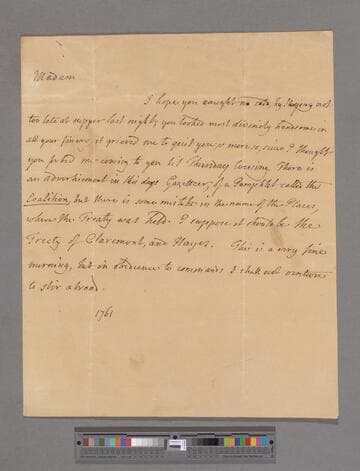 Madam
I hope you caught no cold, by staying out
too late at supper last night, you looked most divinely handsome in
all your finery, it grieved me to quit you, & more so, since I thought
you forbid me coming to you till Thursday Evening. There is
an advertisement in this days Gazetteer, of a Pamphlet called the
Coalition, but there is some mistake in the name of the Places,
where the Treaty was held. I suppose it should be the
Treety of Claremont, and Hayes. This is a very fine
morning, but in obedience to commands I shall not venture
to stir abroad.
1761